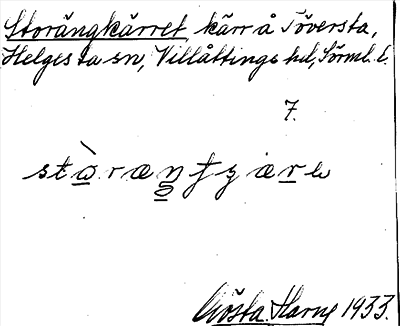 Storängkärret, kärr å Töversta,
Helgesta sn, Villåttinge hd, Sörml. l.
7.
Gösta Harne 1933.